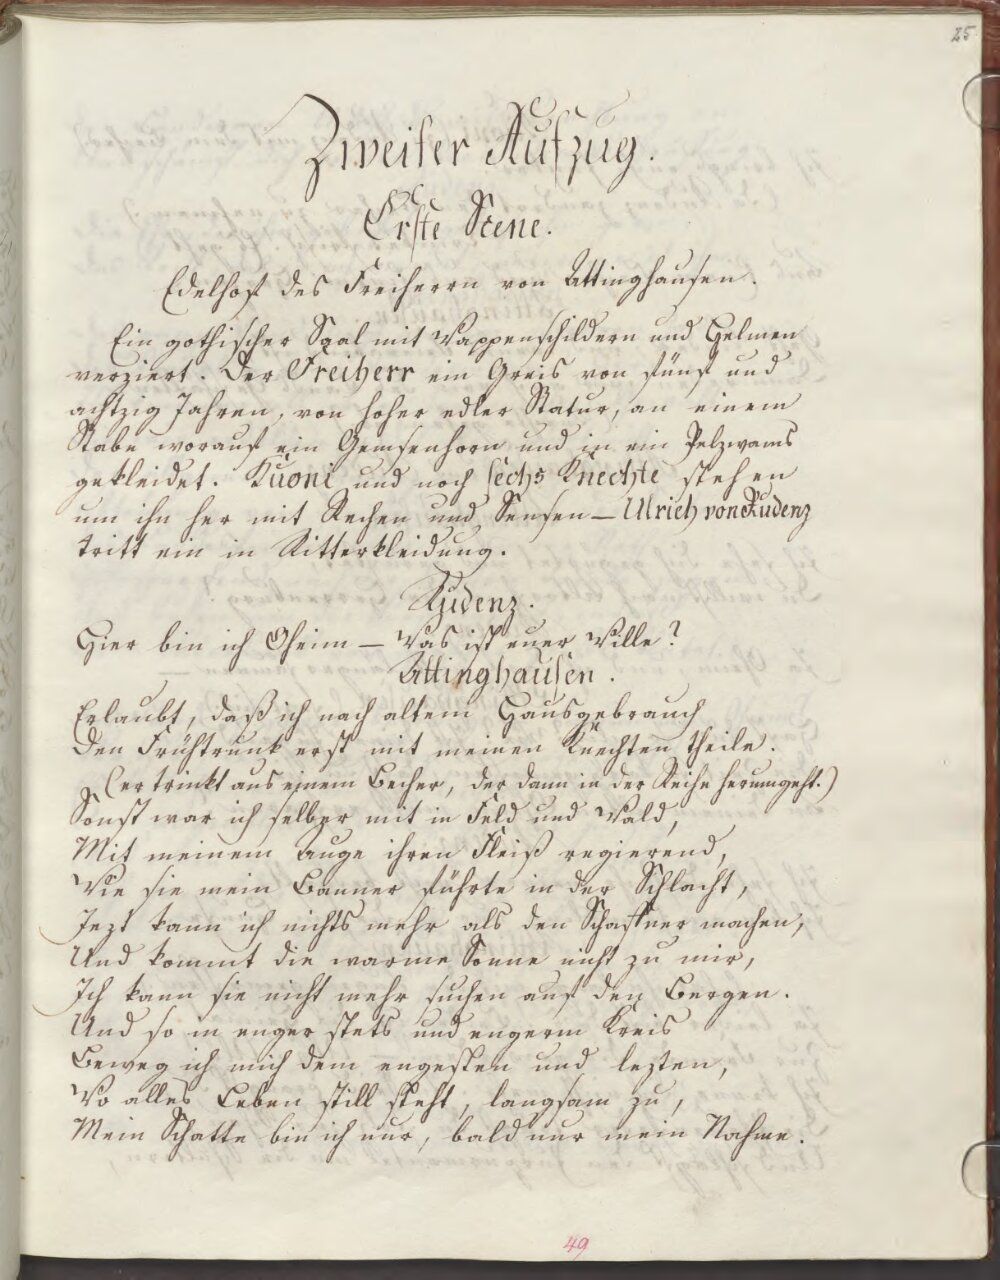 25
Zweiter Aufzug.
Erste Scene.
Edelhof des Freiherrn von Attinghausen.
Ein gothischer Saal mit Wappenschildern und Helmen
verziert. Der Freiherr ein Greis von fünf und
achtzig Jahren, von hoher edler Statur, an einem
Stabe worauf ein Gemsenhorn und in ein Pelzwams
gekleidet. Kuoni und noch sechs Knechte stehen
um ihn her mit Rechen und Sensen – Ulrich von Rudenz
tritt ein in Ritterkleidung.
Rudenz.
Hier bin ich Oheim – Was ist euer Wille?
Attinghausen.
Erlaubt, daß ich nach altem Hausgebrauch
Den Frühtrunk erst mit meinen Knechten theile.
(er trinkt aus einem Becher, der dann in der Reihe herumgeht.)
Sonst war ich selber mit in Feld und Wald,
Mit meinem Auge ihren Fleiß regierend,
Wie sie mein Banner führte in der Schlacht,
Jezt kann ich nichts mehr als den Schaffner machen,
Und kommt die warme Sonne nicht zu mir,
Ich kann sie nicht mehr suchen auf den Bergen.
Und so in enger stets und engerm Kreis
Beweg ich mich dem engesten und lezten,
Wo alles Leben still steht, langsam zu,
Mein Schatte bin ich nur, bald nur mein Nahme.
49